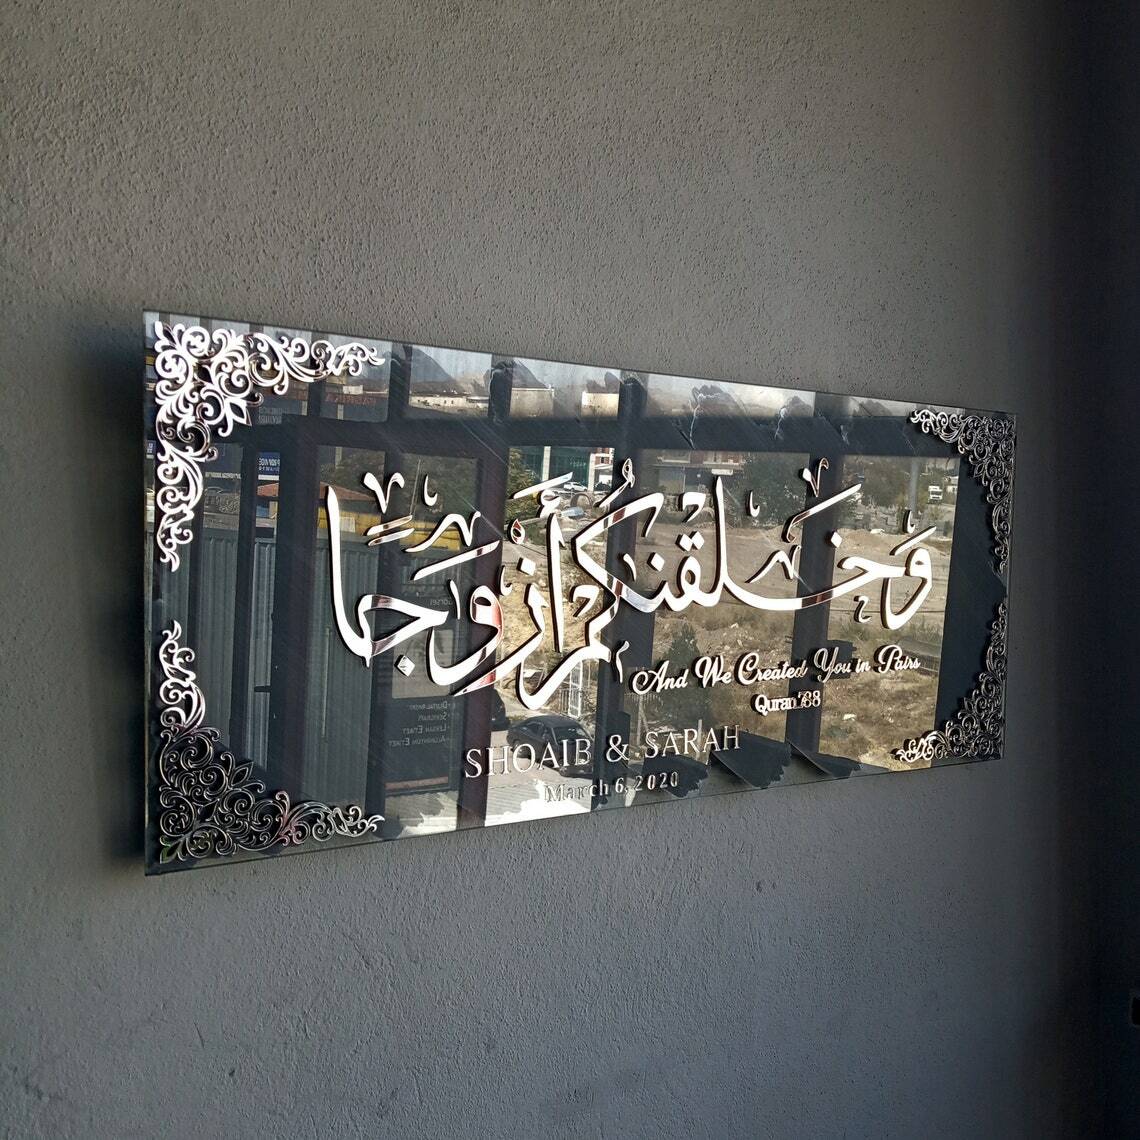 وَخَلَقْنَكُمْ أَزْوَجًا
And We Created You in Pairs
Quran 78:8
SHOAIB & SARAH
March 6, 2020